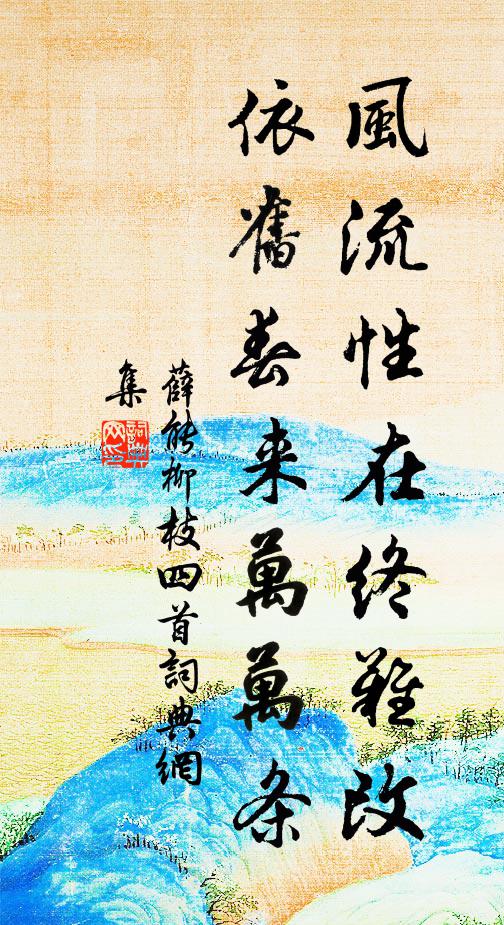 風流性在终難改
依舊春来萬萬条
薛能柳枝四首詞典網
集